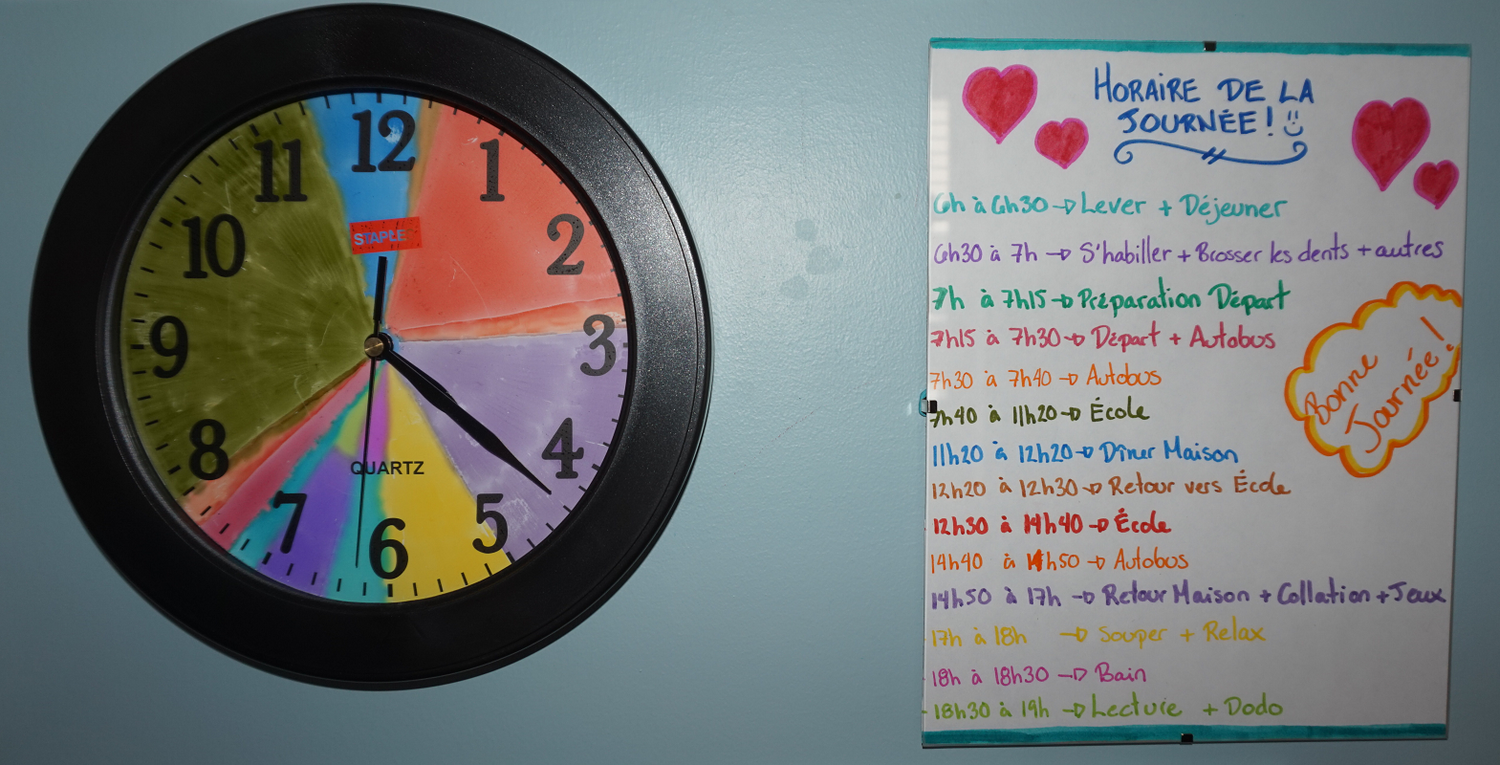 12
1
2
3
4
5
6
7
8
9
10
11
STAPLE
QUARTZ
HORAIRE DE LA
JOURNÉE!
6h à 6h30 → Lever + Déjeuner
6h30 à 7h → S'habiller + Brosser les dents + autres
7h à 7h15 → Préparation Départ
7h15 à 7h30 → Départ + Autobus
7h30 à 7h40 → Autobus
7h40 à 11h20 → École
11h20 à 12h20 → Dîner Maison
12h20 à 12h30 → Retour vers École
12h30 à 14h40 → École
14h40 à 14h50 → Autobus
14h50 à 17h → Retour Maison + Collation + Jeux
17h à 18h → Souper + Relax
18h à 18h30 → Bain
18h30 à 19h → Lecture + Dodo
Bonne
Journée!